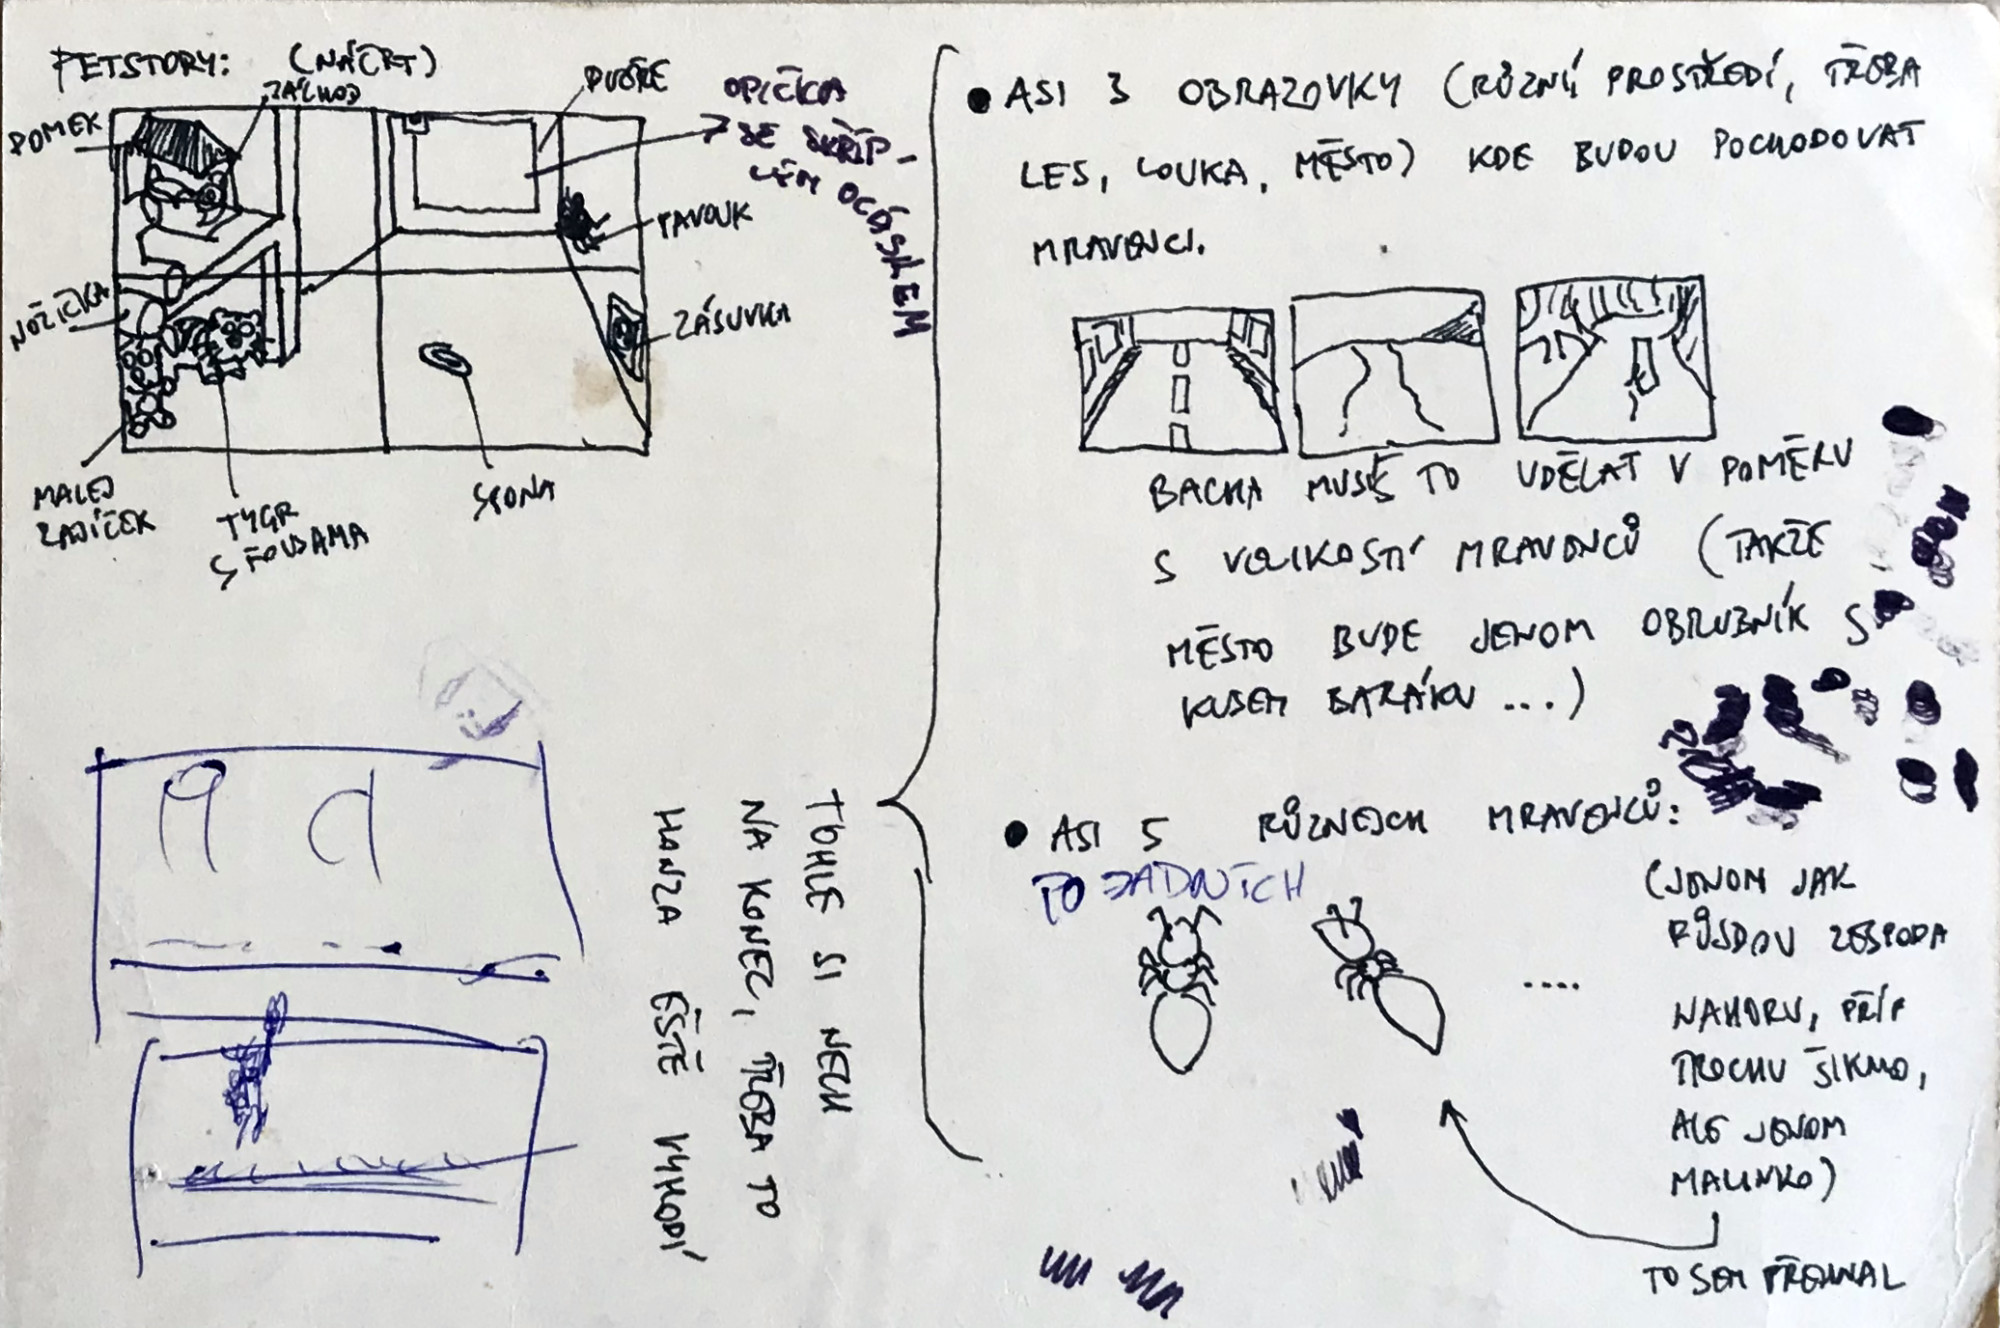 PETSTORY: (NÁČRT)
ZÁCHOD
DOMEK
DVÉŘE
OPIČKA
SE SKŘÍP-
LÉM OCÁSKEM
PAVOUK
NOŽIČKA
ZÁSUVKA
MALEJ
ZAJÍČEK
TYGR
SPONA
• ASI 3 OBRAZOVKY (RŮZNÝ PROSTŘEDÍ, TŘEBA
LES, LOUKA, MĚSTO) KDE BUDOU POCHODOVAT
MRAVENCI.
BACHA MUSÍŠ TO UDĚLAT V POMĚRU
S VELIKOSTÍ MRAVENCŮ (TAKŽE
MĚSTO BUDE JENOM OBRUBNÍK S
KUSEM BARÁKU ...)
TOHLE SI NECH
NA KONEC, TŘEBA TO
HONZA EŠTĚ VYHODÍ
• ASI 5 RŮZNEJCH MRAVENCŮ:
PO ZADNÍCH
....
(JENOM JAK
PŮJDOU ZESPODA
NAHORU, PŘÍP
TROCHU ŠIKMO,
ALE JENOM
MALINKO)
TO SEM PŘEHNAL